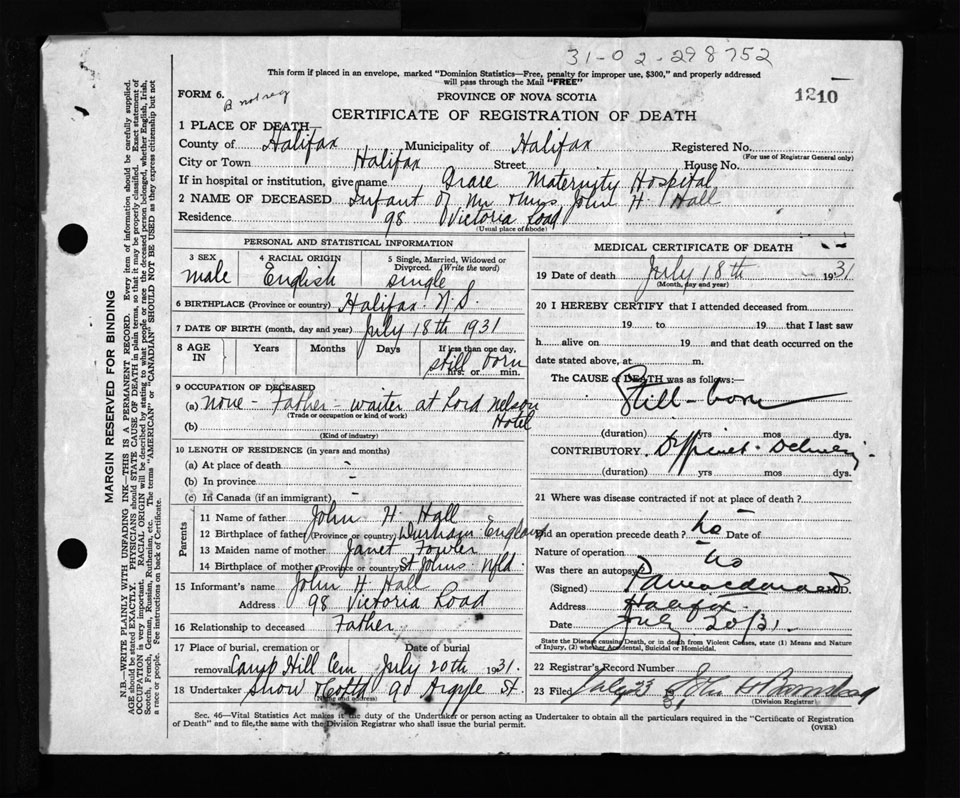 31-02-298752
This form if placed in an envelope, marked "Dominion Statistics—Free, penalty for improper use, $300," and properly addressed
will pass through the Mail "FREE"
FORM 6. B not reg
PROVINCE OF NOVA SCOTIA
1210
CERTIFICATE OF REGISTRATION OF DEATH
1 PLACE OF DEATH—
County of Halifax Municipality of Halifax Registered No.
(For use of Registrar General only)
City or Town Halifax Street House No.
If in hospital or institution, give name Grace Maternity Hospital
2 NAME OF DECEASED Infant of Mr John H. Hall
Residence 98 Victoria Road
(Usual place of abode)
PERSONAL AND STATISTICAL INFORMATION
3 SEX 4 RACIAL ORIGIN 5 Single, Married, Widowed or Divorced. (Write the word)
male English single
6 BIRTHPLACE (Province or country) Halifax N.S.
7 DATE OF BIRTH (month, day and year) July 18th 1931
8 AGE IN Years Months Days If less than one day,
still born
hrs. or min.
9 OCCUPATION OF DECEASED
(a) none - Father - waiter at Lord Nelson Hotel
(Trade or occupation or kind of work)
(b)
(Kind of industry)
10 LENGTH OF RESIDENCE (in years and months)
(a) At place of death -
(b) In province -
(c) In Canada (if an immigrant) -
Parents
11 Name of father John H Hall
12 Birthplace of father (Province or country) Durham England
13 Maiden name of mother Janet Fowler
14 Birthplace of mother (Province or country) St Johns Nfld.
15 Informant's name John H. Hall
Address 98 Victoria Road
16 Relationship to deceased Father
17 Place of burial, cremation or Date of burial
removal Camp Hill Cem July 20th 1931.
18 Undertaker Snow 90 Argyle St.
(Name and address)
MEDICAL CERTIFICATE OF DEATH
19 Date of death July 18th 1931
(Month, day and year)
20 I HEREBY CERTIFY that I attended deceased from
19 to 19 that I last saw
h alive on 19 and that death occurred on the
date stated above, at m.
The CAUSE of DEATH was as follows:—
Still-born
(duration) yrs mos dys.
CONTRIBUTORY Difficult Delivery.
(duration) yrs mos dys.
21 Where was disease contracted if not at place of death?
Did an operation precede death? no Date of
Nature of operation
Was there an autopsy no
(Signed) M.D.
Address Halifax
Date July 20/31.
State the Disease causing Death, or in death from Violent Causes, state (1) Means and Nature
of Injury, (2) whether Accidental, Suicidal or Homicidal.
22 Registrar's Record Number
23 Filed July 23 31 John
(Division Registrar)
Sec. 46—Vital Statistics Act makes it the duty of the Undertaker or person acting as Undertaker to obtain all the particulars required in the "Certificate of Registration
of Death" and to file, same with the Division Registrar who shall issue the burial permit.
(OVER)
MARGIN RESERVED FOR BINDING
N.B.—WRITE PLAINLY WITH UNFADING INK—THIS IS A PERMANENT RECORD. Every item of information should be carefully supplied.
AGE should be stated EXACTLY. PHYSICIANS should STATE CAUSE OF DEATH in plain terms, so that it may be properly classified. Exact statement of
OCCUPATION is very important. RACIAL ORIGIN will be described by stating to what people or race the deceased person belonged, whether English, Irish,
Scotch, French, German, Russian, Ruthenian, etc. The terms "AMERICAN" or "CANADIAN" SHOULD NOT BE USED as they express citizenship but not
a race or people. See instructions on back of Certificate.